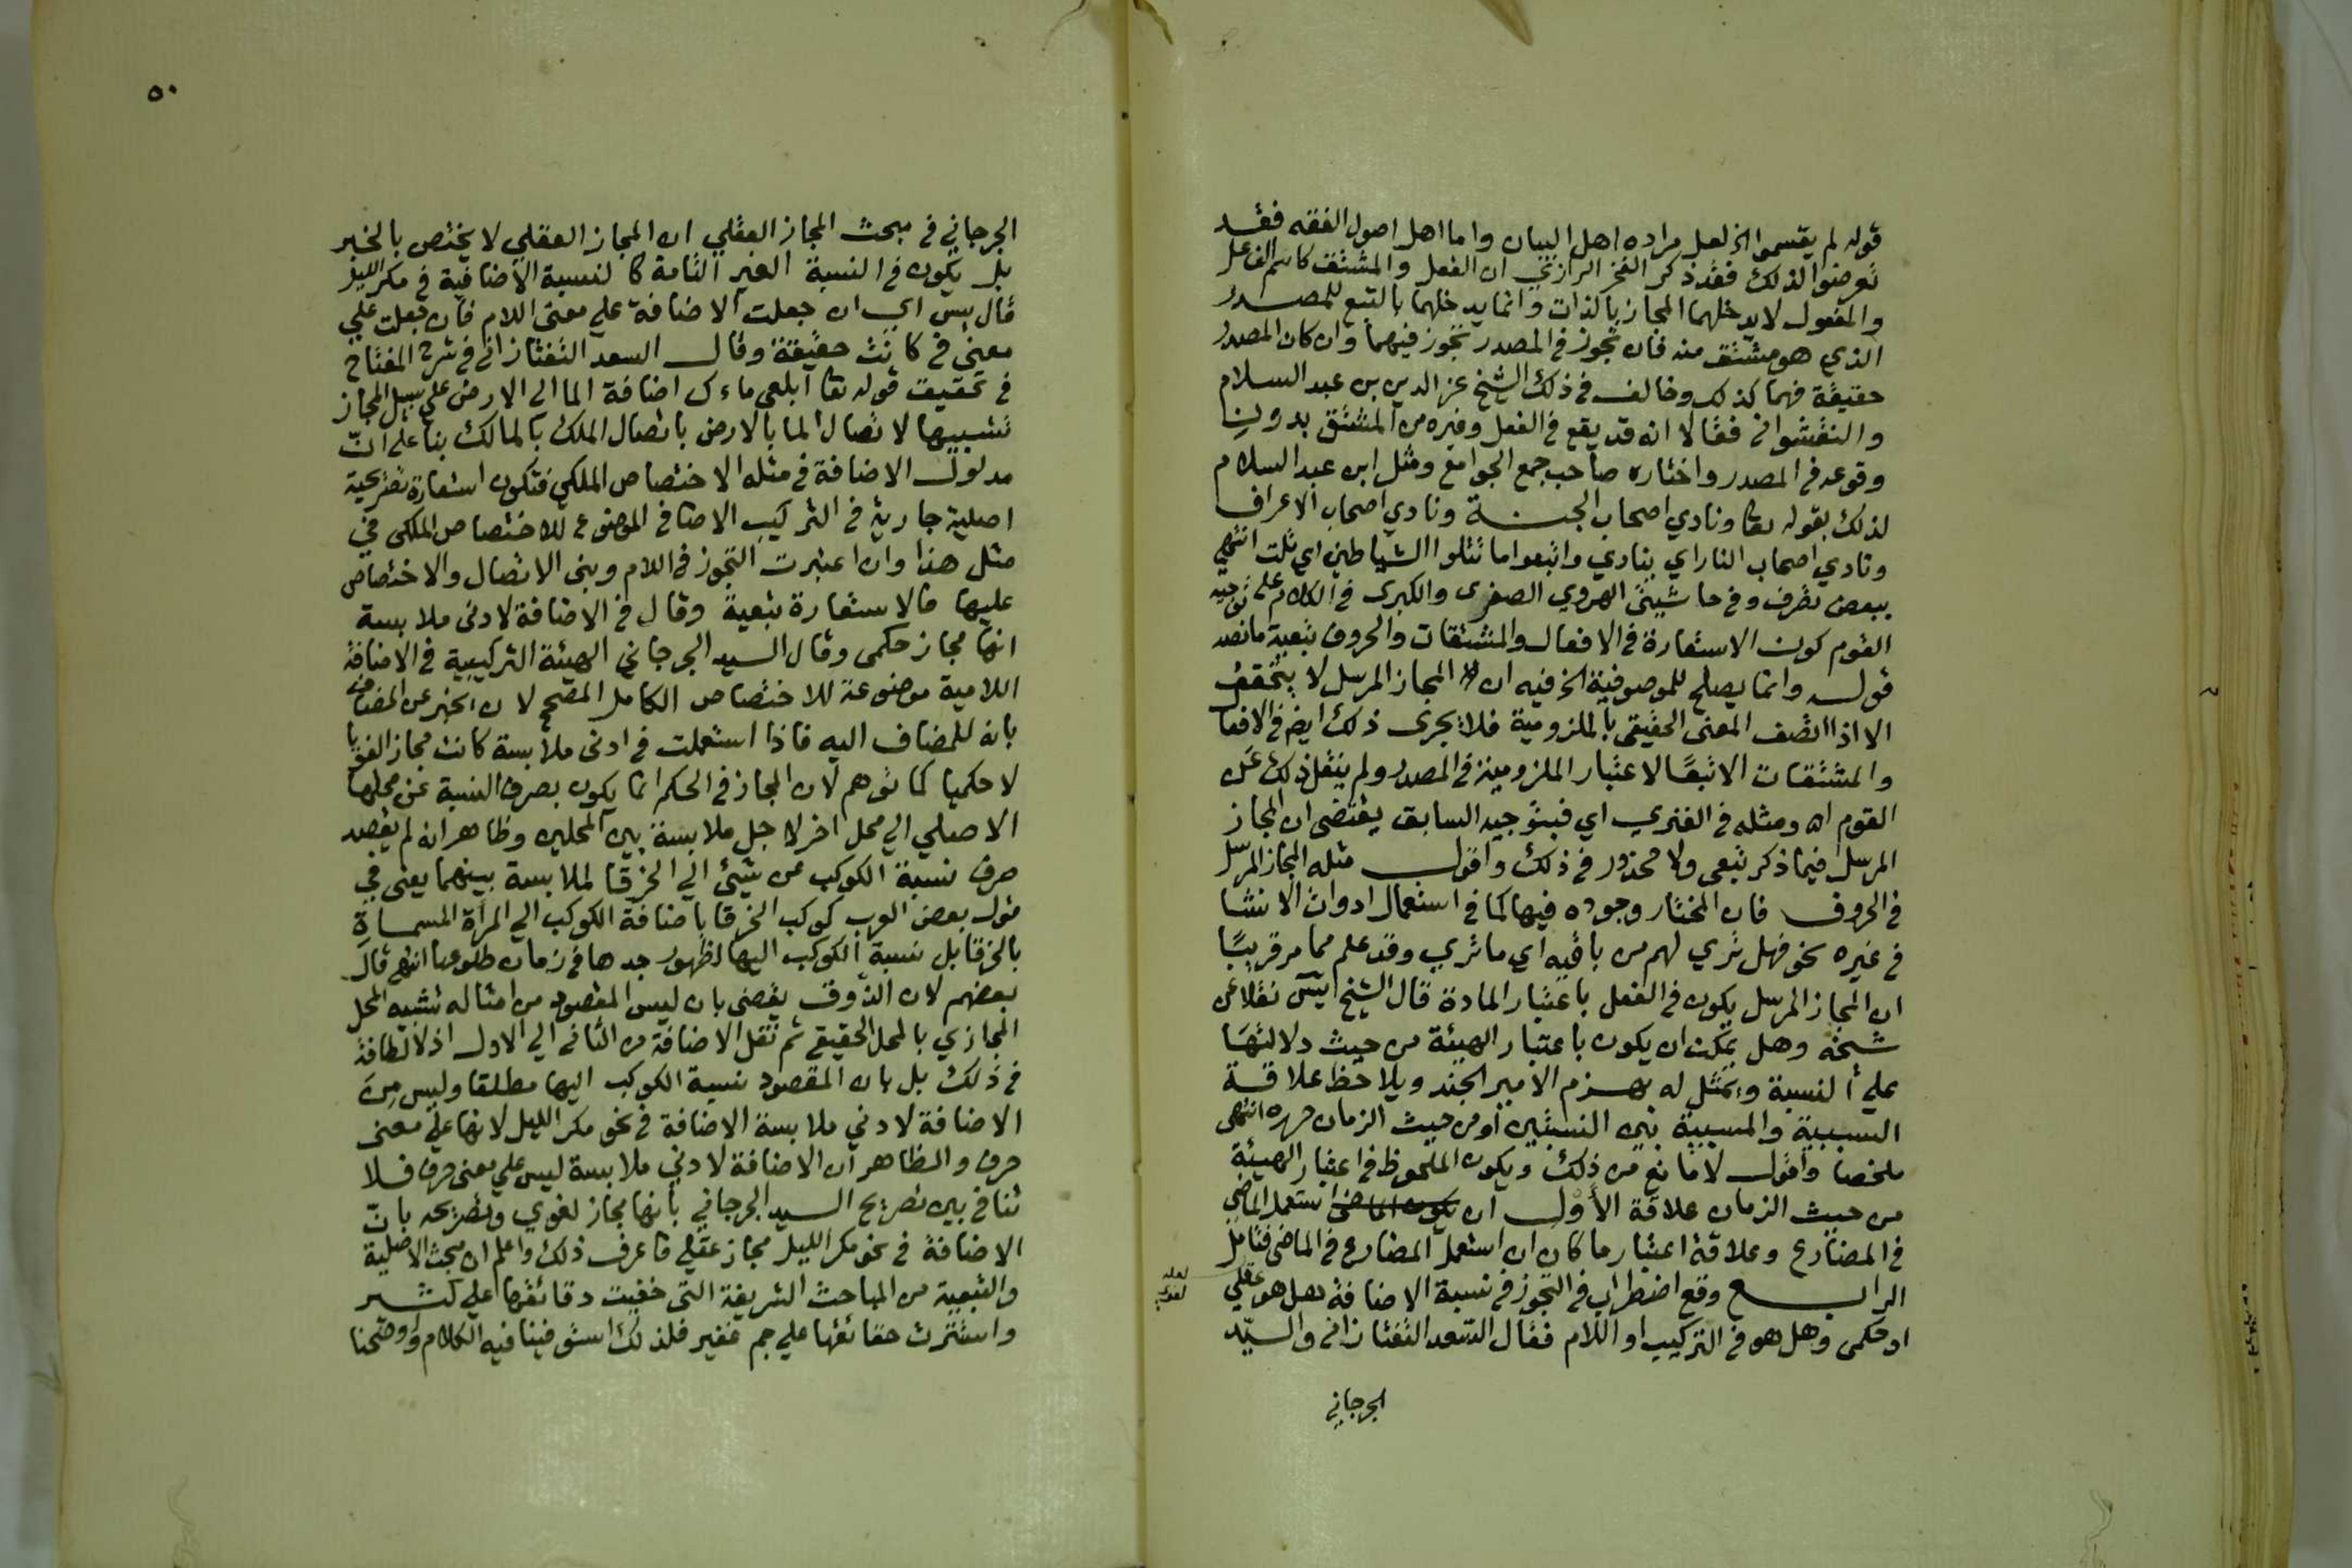 قوله لم يقسموا الخ لعل مراده اهل البيان واما اهل اصول الفقه فقد
تعرضوا لذلك فقد ذكر الفخر الرازي ان الفعل والمشتق كاسم الفاعل
والمفعول لا يدخلهما المجاز بالذات وانما يدخلهما بالتبع للمصدر
الذي هو مشتق منه فان تجوز في المصدر تجوز فيهما وان كان المصدر
حقيقة فهما كذلك وخالف في ذلك الشيخ عز الدين بن عبد السلام
والنقشواني فقالا انه قد يقع في الفعل وغيره من المشتق بدون
وقوعه في المصدر واختاره صاحب جمع الجوامع ومثل ابن عبد السلام
لذلك بقوله تعا ونادي اصحاب الجنة ونادي اصحاب الاعراف
ونادي اصحاب النار اي ينادي واتبعوا ما تتلوا الشياطين اي تلت انتهي
ببعض تصرف وفي حاشيتى الهروي الصغرى والكبرى في الكلام على توجيه
القوم كون الاستعارة في الافعال والمشتقات والحروف تبعية ما نصه
قوله وانما يصلح للموصوفية الخ فيه ان المجاز المرسل لا يتحقق
الا اذا اتصف المعنى الحقيقى بالملزومية فلا يجرى ذلك ايض في الافعا
والمشتقات الا تبعًا لاعتبار الملزومية في المصدر ولم ينقل ذلك عن
القوم اه ومثله في الفنري اي فبتوجيه السابق يقتضى ان المجاز
المرسل فيما ذكر تبعى ولا محذور في ذلك واقول مثله المجاز المرسل
في الحروف فان المختار وجوده فيها كما في استعمال ادوات الانشا
في غيره نحو فهل تري لهم من باقيه اي ما تري وقد علم مما مر قريبًا
ان المجاز المرسل يكون في الفعل باعتبار المادة قال الشيخ يس نقلا عن
شيخه وهل يمكن ان يكون باعتبار الهيئة من حيث دلالتها
علي النسبة ويمثل له بهزم الامير الجند ويلاحظ علاقة
السببية والمسببية بين النسبتين او من حيث الزمان حرره انتهى
ملخصا واقول لا مانع من ذلك ويكون الملحوظ في اعتبار الهيئة
من حيث الزمان علاقة الأول ان استعمل الماضي
في المضارع وعلاقة اعتبار ما كان ان استعمل المضارع في الماضى فتامل
الرابع وقع اضطراب في التجوز في نسبة الاضافة هل هو عقلي
لعله
لغوي
او حكمى وهل هو في التركيب او اللام فقال السعد التفتازاني والسيد
الجرجاني
٥٠
الجرجاني في مبحث المجاز العقلي ان المجاز العقلي لا يختص بالخبر
بل يكون في النسبة الغير التامة كالنسبة الاضافية في مكر الليل
قال يس اي ان جعلت الاضافة علي معنى اللام فان جعلت علي
معني في كانت حقيقة وقال السعد التفتازاني في شرح المفتاح
في تحقيق قوله تعا ابلعى ماءك اضافة الما الي الارض علي سبيل المجاز
تشبيها لاتصال الما بالارض باتصال الملك بالمالك بنا على انّ
مدلول الاضافة في مثله الاختصاص الملكي فتكون استعارة تصريحية
اصلية جارية في التركيب الاضافي الموضوع للاختصاص الملكى في
مثل هذا وان اعتبرت التجوز في اللام وبنى الاتصال والاختصاص
عليها فالاستعارة تبعية وقال في الاضافة لادنى ملابسة
انها مجاز حكمى وقال السيد الجرجاني الهيئة التركيبية في الاضافة
اللامية موضوعة للاختصاص الكامل المصحح لان يخبر عن المضاف
بانه للمضاف اليه فاذا استعملت في ادنى ملابسة كانت مجازا لغويا
لا حكميا كما توهم لان المجاز في الحكم انما يكون بصرف النسبة عن محلها
الاصلي الي محل اخر لاجل ملابسة بين المحلين وظاهر انه لم يقصد
صرف نسبة الكوكب عن شيئ الي الخرقا لملابسة بينهما يعنى في
قول بعض العرب كوكب الخرقا باضافة الكوكب الي المرأة المسماة
بالخرقا بل نسبة الكوكب اليها لظهور جدها في زمان طلوعها انتهى قال
بعضهم لان الذوق يقضى بان ليس المقصود من امثاله تشبيه المحل
المجازي بالمحل الحقيقي ثم نقل الاضافة من الثاني الي الاول اذ لا لطافة
في ذلك بل بان المقصود نسبة الكوكب اليها مطلقا وليس من
الاضافة لادني ملابسة الاضافة في نحو مكر الليل لانها علي معنى
حرف والظاهر ان الاضافة لادني ملابسة ليس علي معنى حرف فلا
تنافي بين تصريح السيد الجرجاني بانها مجاز لغوي وتصريحه بانّ
الاضافة في نحو مكر الليل مجاز عقلي فاعرف ذلك واعلم ان مبحث الاصلية
والتبعية من المباحث الشريفة التى خفيت دقائقها علي كثير
واستترت حقائقها علي جم غفير فلذلك استوفينا فيه الكلام ووضحنا